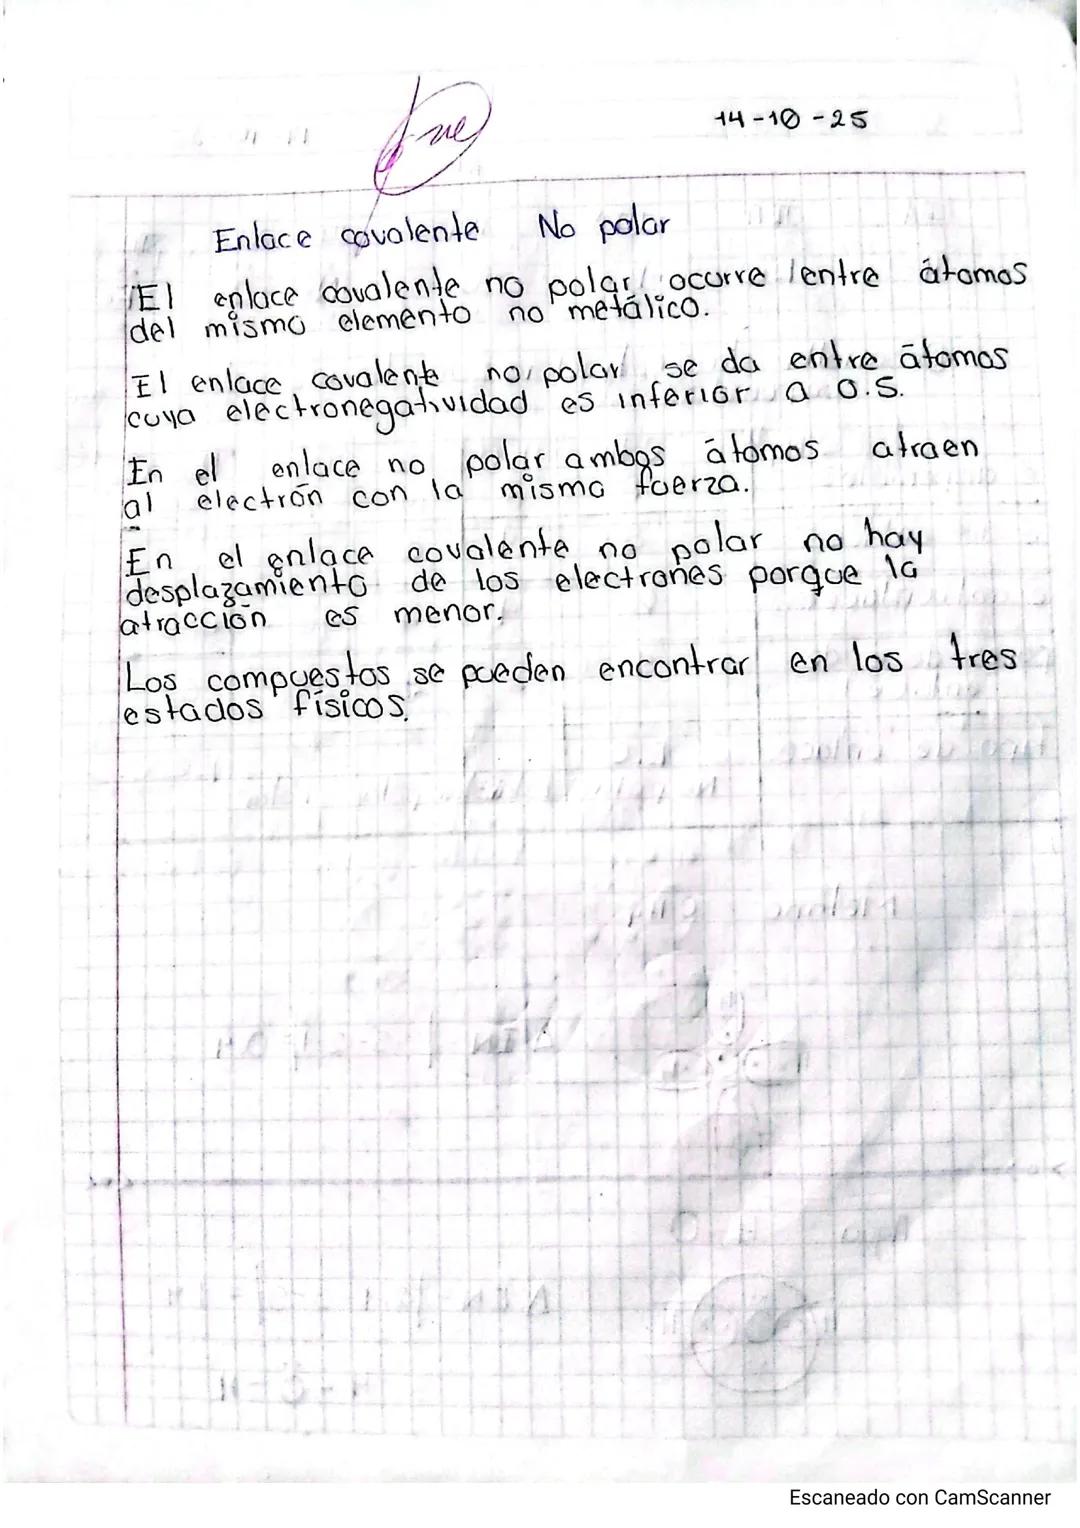 14-10-25
Enlace covalente No polar
El enlace covalente no polar ocurre entre átomos
del mismo elemento no metálico.
El enlace covalente no polar se da entre átomos
cuya electronegatividad es inferior a 0.5.
En el enlace no polar ambos átomos atraen
al electrón con la misma fuerza.
En el enlace covalente no polar no hay
desplazamiento de los electrones porque la
atracción es menor.
Los compuestos se pueden encontrar en los tres
estados físicos.
Escaneado con CamScanner